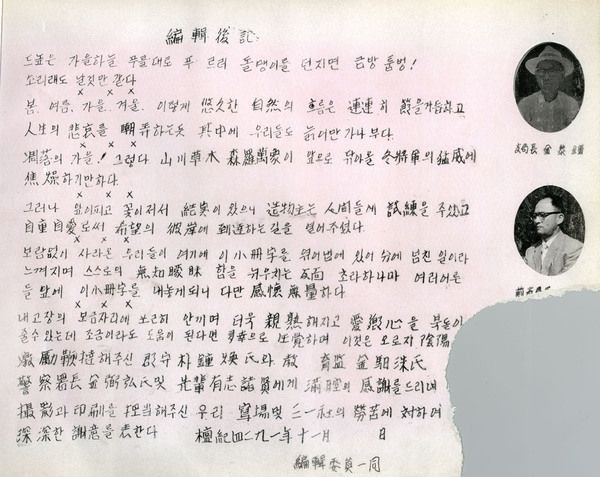 編輯後記
드높은 가을하늘 푸를대로 푸르러 돌맹이를 던지면 금방 둠벙!
소리래도 날것만 같다
x x x
봄. 여름. 가을. 겨울. 이렇게 悠久한 自然의 흐름은 連連히 거듭하고
人生의 悲哀를 嘲弄하는듯 其中에 우리들도 늙어만 가나부다.
x x x
凋落의 가을! 그렇다. 山川草木 森羅萬象이 앞으로 닥아올 冬將軍의 猛威에
焦燥하기만하다.
x x x
그러나 잎이피고 꽃이저서 結実이 있으니 造物主는 人間들에 試練을 주섰고
自重自愛로써 希望의 彼岸에 到達하는길을 열어주섰다.
x x x
보람없이 사라온 우리들이 여기에 이小冊字를 엮어냄에 있어 分에 넘친 일이라
느껴지며 스스로의 無知曖昧 함을 뉘우치는 反面 초라하나마 여러어른
들 앞에 이小冊字를 내놓게되니 다만 感懷無量하다
x x x
내고장의 보금자리에 포근히 안기며 더욱 親熟해지고 愛鄕心을 북돋아
줄수있는데 조금이라도 도움이 된다면 多幸으로 生覺하며 이것은 오로지 陰陽
激勵鞭撻해주신 郡守 朴鍾煥氏와. 敎育監 金 洙氏
警察署長 金弼弘氏및 先輩有志諸賢에게 滿腔의 感謝를드리며
撮影과 印刷을 担当해주신 우리 寫場및 三一社의 勞苦에 対하여
深深한 謝意를表한다 檀紀四二九一年十一月 日
編輯委員一同
支局長 金